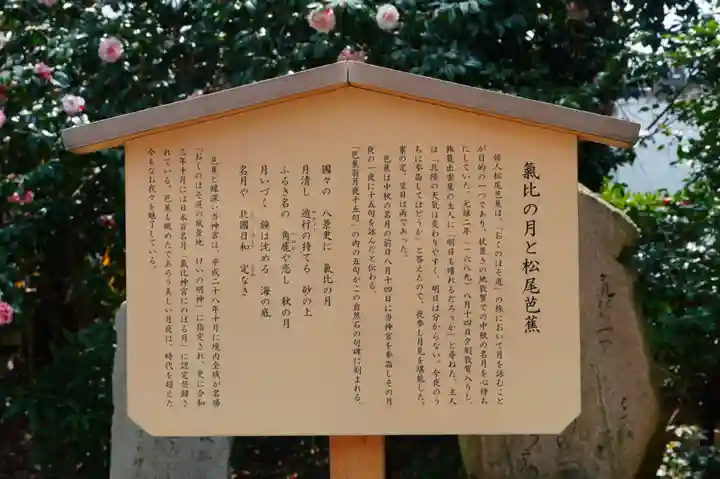 氣比の月と松尾芭蕉
俳人松尾芭蕉は、『おくのほそ道』の旅において月を詠むこと
が目的の一つであり、杖置きの地敦賀での中秋の名月を心待ち
にしていた。元禄二年（一六八九）八月十四日夕刻敦賀へ入りし、
旅籠出雲屋の主人に「明日も晴れるだろうか」と尋ねた。主人
は「北陸の天気は変わりやすく、明日は分からない。今夜のう
ちに参詣してはどうか」と答えたので、夜参し月見を堪能した。
案の定、翌日は雨であった。
芭蕉は中秋の名月の前日八月十四日に当神宮を参詣しその月
夜の一夜に十五句を詠んだと伝わる。
「芭蕉翁月夜十五句」の内の五句がこの自然石の句碑に刻まれる。
國々の 八景更に 氣比の月
月清し 遊行の持てる 砂の上
ふるき名の 角鹿や恋し 秋の月
月いづく 鐘は沈める 海の底
名月や 北國日和 定なき
芭蕉と縁深い当神宮は、平成二十八年十月に境内全域が名勝
「おくのほそ道の風景地 けいの明神」に指定され、更に令和
三年十月には日本百名月「氣比神宮にのぼる月」に認定登録さ
れている。芭蕉も眺めたであろう美しい月夜は、時代を超えた
今もなお我々を魅了している。